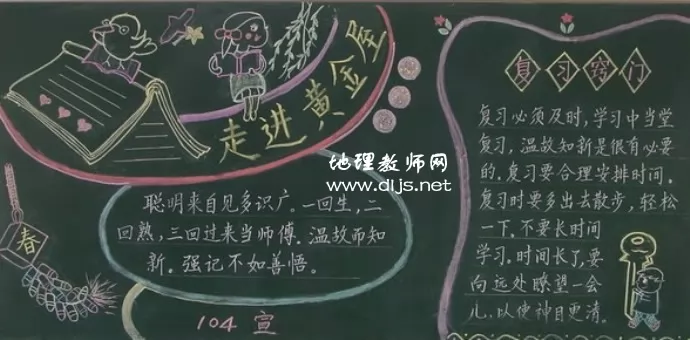 走进黄金屋
地理教师网
www.dljs.net
聪明来自见多识广。一回生,二
回熟,三回过来当师傅。温故而知
新。强记不如善悟。
春
104 宣
复习窍门
复习必须及时,学习中当堂
复习,温故知新是很有必要
的。复习要合理安排时间。
复习时要多出去散步,轻松
一下。不要长时间
学习。时间长了,要
向远处瞭望一会
儿,以使神目更清。